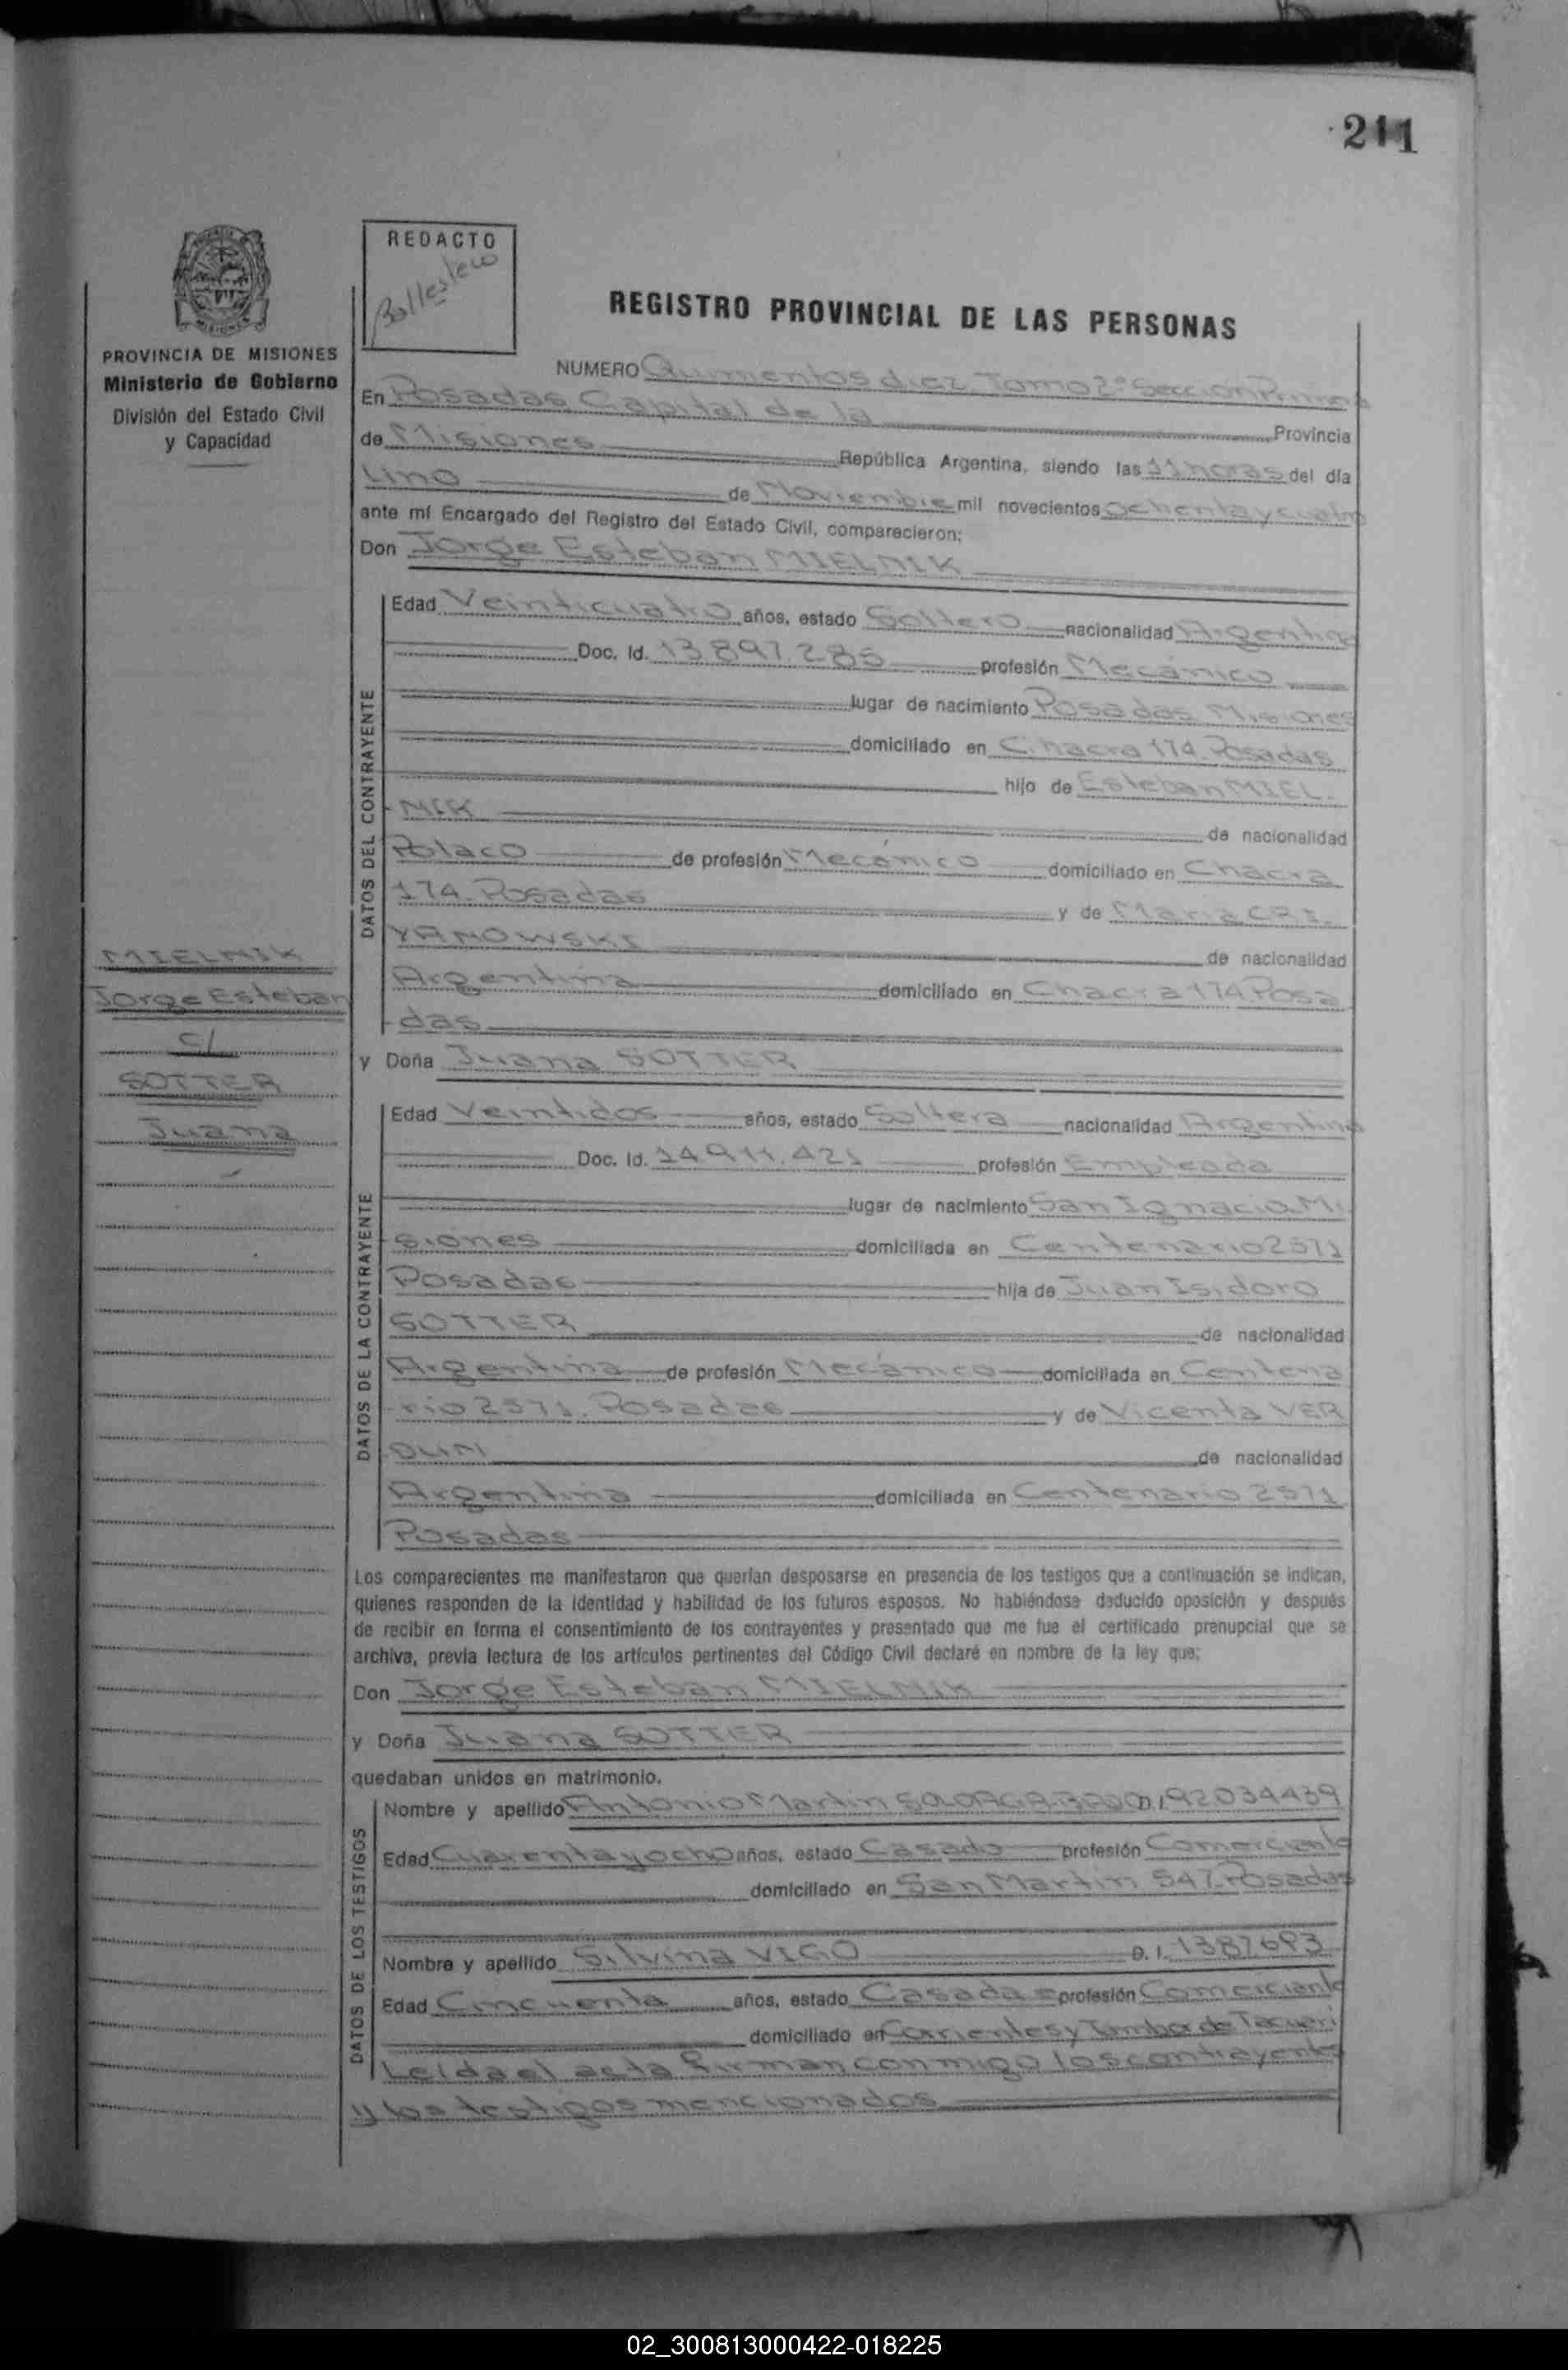 211
REDACTO
Ballestero
REGISTRO PROVINCIAL DE LAS PERSONAS
PROVINCIA DE MISIONES
Ministerio de Gobierno
División del Estado Civil
y Capacidad
NUMERO Quinientos diez. Tomo 2º Sección Primera
En Posadas, Capital de la Provincia
de Misiones República Argentina, siendo las 11 horas del día
Uno de Noviembre mil novecientos ochenta y cuatro
ante mí Encargado del Registro del Estado Civil, comparecieron:
Don Jorge Esteban MIELNIK
DATOS DEL CONTRAYENTE
Edad Veinticuatro años, estado Soltero nacionalidad Argentina
Doc. Id. 13.897.285 profesión Mecánico
lugar de nacimiento Posadas Misiones
domiciliado en Chacra 174. Posadas
hijo de Esteban MIEL-
-NIK de nacionalidad
Polaco de profesión Mecánico domiciliado en Chacra
174. Posadas y de Maria CRI-
YANOWSKI de nacionalidad
Argentina domiciliado en Chacra 174 Posa
-das
MIELNIK
Jorge Esteban
c/
SOTTER
Juana
y Doña Juana SOTTER
DATOS DE LA CONTRAYENTE
Edad Veintidos años, estado Soltera nacionalidad Argentina
Doc. Id. 14.911.421 profesión Empleada
lugar de nacimiento San Ignacio. Mi
siones domiciliada en Centenario 2571
Posadas hija de Juan Isidoro
SOTTER de nacionalidad
Argentina de profesión Mecánico domiciliada en Centena
-rio 2571. Posadas y de Vicenta VER
DUN de nacionalidad
Argentina domiciliada en Centenario 2571
Posadas
Los comparecientes me manifestaron que querían desposarse en presencia de los testigos que a continuación se indican,
quienes responden de la identidad y habilidad de los futuros esposos. No habiéndose deducido oposición y después
de recibir en forma el consentimiento de los contrayentes y presentado que me fue el certificado prenupcial que se
archiva, previa lectura de los artículos pertinentes del Código Civil declaré en nombre de la ley que:
Don Jorge Esteban MIELNIK
y Doña Juana SOTTER
quedaban unidos en matrimonio.
DATOS DE LOS TESTIGOS
Nombre y apellido Antonio Martin D.I. 92034439
Edad Cuarenta y ocho años, estado Casado profesión Comerciante
domiciliado en San Martin 547. Posadas
Nombre y apellido Silvina VIGO D. I. 1387693
Edad Cincuenta años, estado Casada profesión Comerciante
domiciliado en Corrientes y Tambor de Tacuari
Leída el acta firman conmigo los contrayentes
y los testigos mencionados
02_300813000422-018225